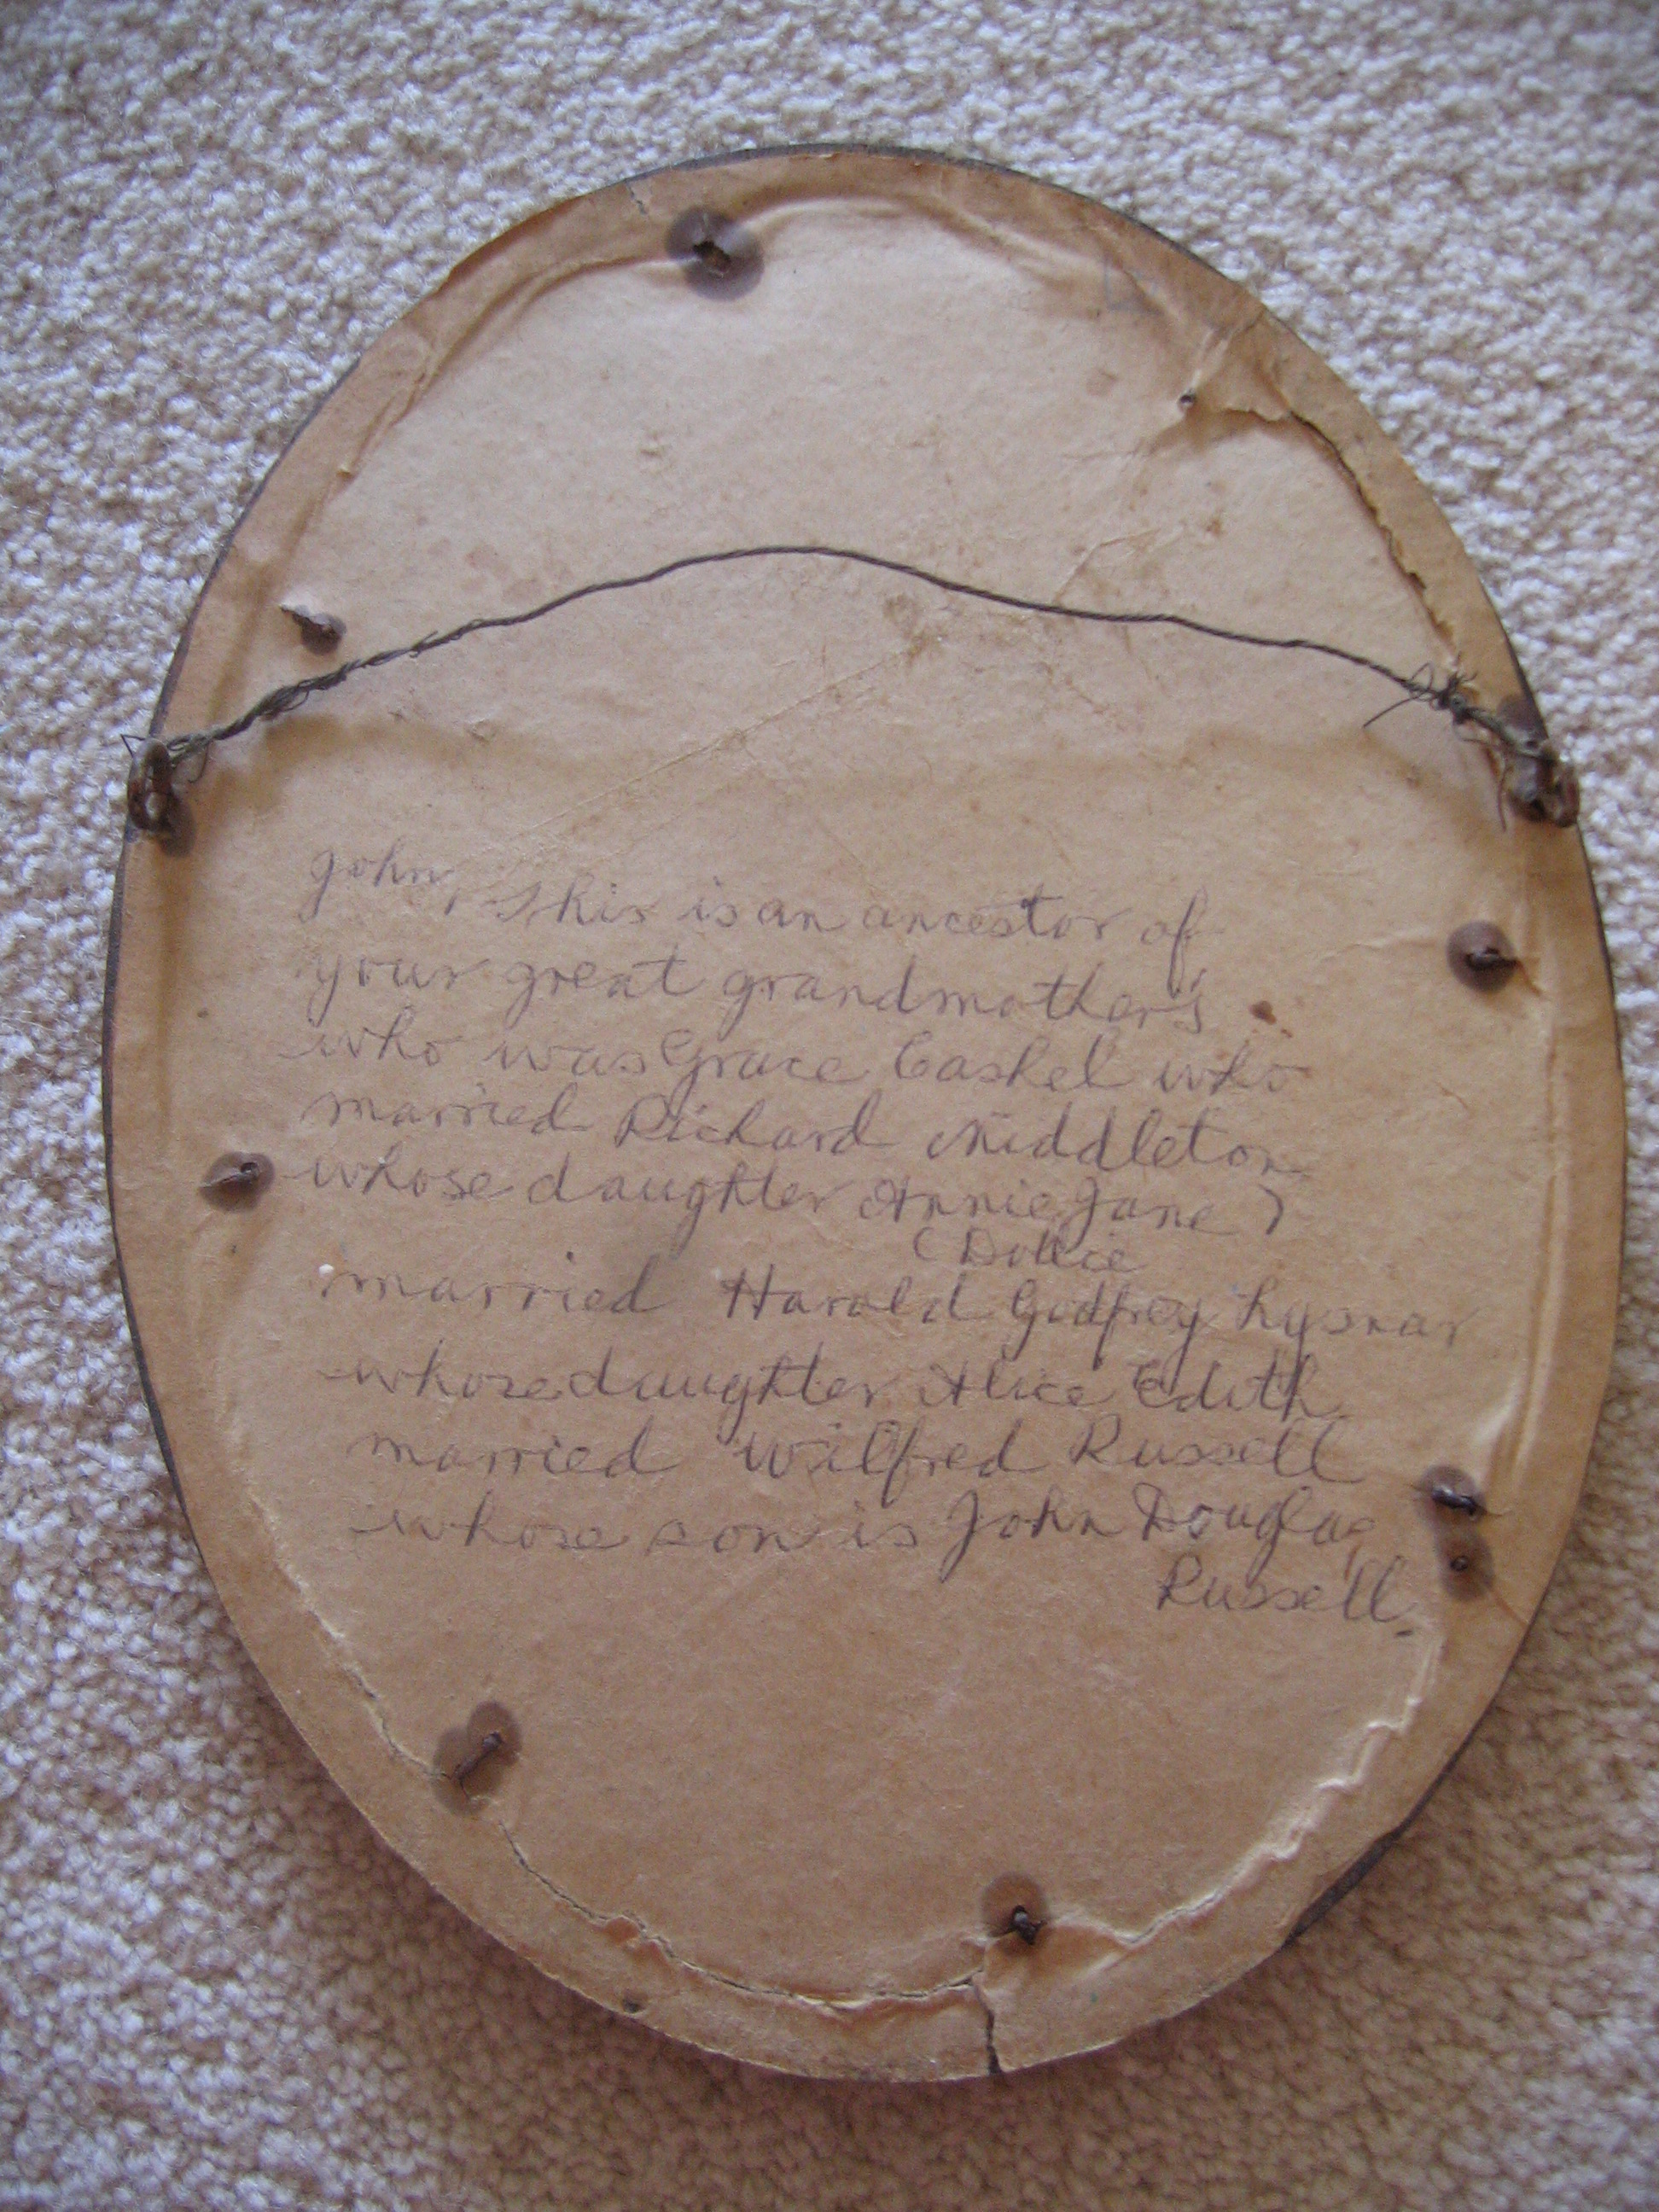 John, This is an ancestor of
your great grandmother's
who was Grace Cashel who
married Richard Middleton
whose daughter Annie Jane )
( Dollie
married Harold Godfrey Lysnar
whose daughter Alice Edith
married Wilfred Russell
whose son is John Douglas
Russell